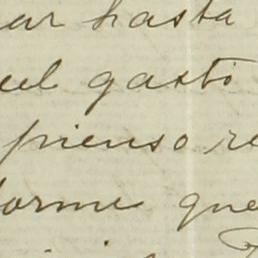 ar hasta
el gasto
pienso re
forme que